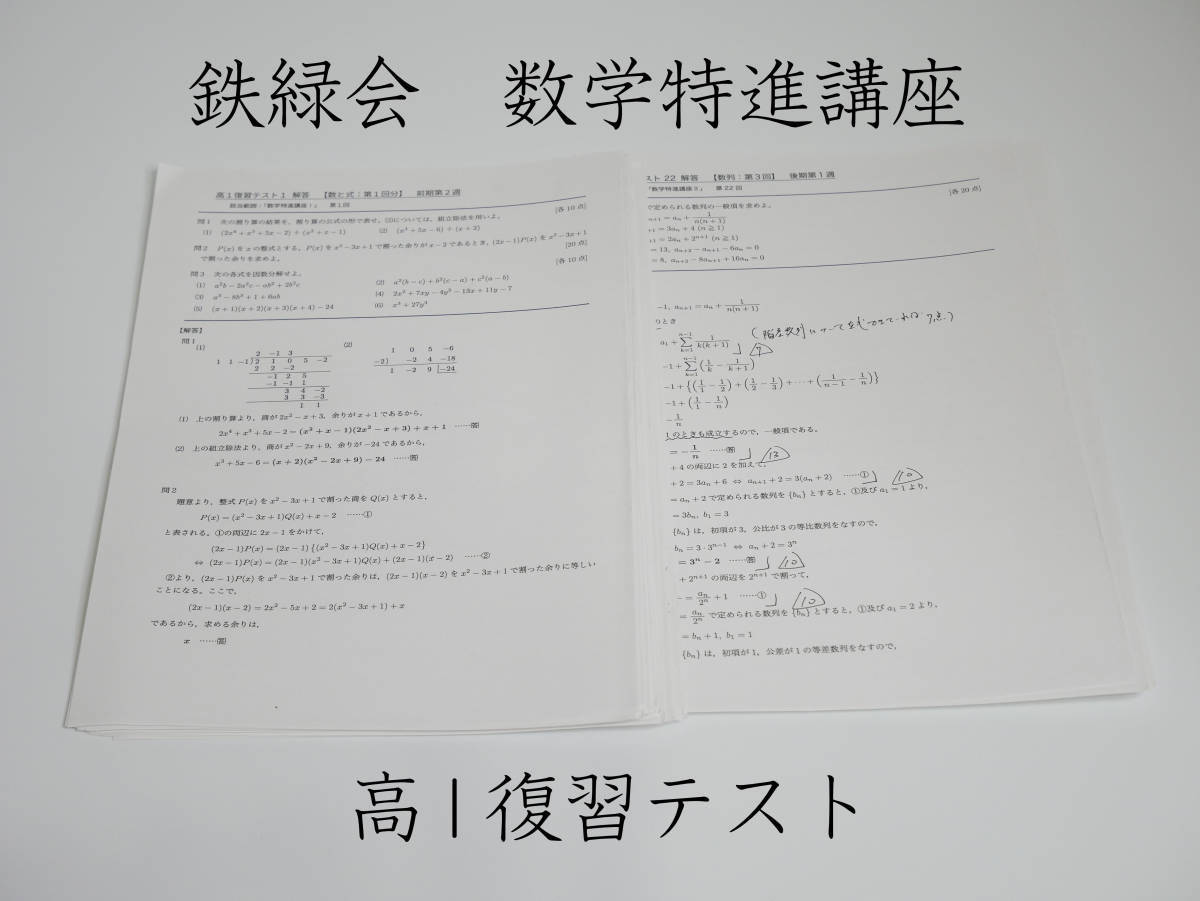 鉄緑会　数学特進講座
高1復習テスト1 解答 【数と式：第1回分】 前期第2週
該当範囲：「数学特進講座Ⅰ」 第1回
[各10点]
問1 次の割り算の結果を，割り算の公式の形で表せ．(2)については，組立除法を用いよ．
(1) (2x⁴+x³+5x−2)÷(x²+x−1) (2) (x³+5x−6)÷(x+2)
問2 P(x)をxの整式とする．P(x)をx²−3x+1で割った余りがx−2であるとき，(2x−1)P(x)をx²−3x+1
で割った余りを求めよ．
[20点]
問3 次の各式を因数分解せよ．
[各10点]
(1) a²b−2a²c−ab²+2b²c (2) a²(b−c)+b²(c−a)+c²(a−b)
(3) a³−8b³+1+6ab (4) 2x²+7xy−4y²−13x+11y−7
(5) (x+1)(x+2)(x+3)(x+4)−24 (6) x³+27y³
【解答】
問1
(1)
2 −1 3
1 1 −1) 2 1 0 5 −2
2 2 −2
−1 2 5
−1 −1 1
3 4 −2
3 3 −3
1 1
(2)
1 0 5 −6
−2) −2 4 −18
1 −2 9 |−24
(1) 上の割り算より，商が2x²−x+3，余りがx+1であるから，
2x⁴+x³+5x−2=(x²+x−1)(2x²−x+3)+x+1 ……答
(2) 上の組立除法より，商がx²−2x+9，余りが−24であるから，
x³+5x−6=(x+2)(x²−2x+9)−24 ……答
問2
題意より，整式P(x)をx²−3x+1で割った商をQ(x)とすると，
P(x)=(x²−3x+1)Q(x)+x−2 ……①
と表される．①の両辺に2x−1をかけて，
(2x−1)P(x)=(2x−1){(x²−3x+1)Q(x)+x−2}
⇔ (2x−1)P(x)=(2x−1)(x²−3x+1)Q(x)+(2x−1)(x−2) ……②
②より，(2x−1)P(x)をx²−3x+1で割った余りは，(2x−1)(x−2)をx²−3x+1で割った余りに等しい
ことになる．ここで，
(2x−1)(x−2)=2x²−5x+2=2(x²−3x+1)+x
であるから，求める余りは，
x ……答
スト22 解答 【数列：第3回】 後期第1週
「数学特進講座3」 第22回
[各20点]
で定められる数列の一般項を求めよ．
aₙ₊₁=aₙ+1/n(n+1)
₊₁=3aₙ+4 (n≧1)
₊₁=2aₙ+2ⁿ⁺¹ (n≧1)
=13, aₙ₊₂−aₙ₊₁−6aₙ=0
=8, aₙ₊₂−8aₙ₊₁+16aₙ=0
−1, aₙ₊₁=aₙ+1/n(n+1)
のとき
a₁+∑[k=1,n−1] 1/k(k+1)
−1+∑[k=1,n−1](1/k−1/(k+1))
−1+{(1/1−1/2)+(1/2−1/3)+⋯+(1/(n−1)−1/n)}
−1+(1/1−1/n)
−1/n
1のときも成立するので，一般項である．
=−1/n ……答 13
+4の両辺に2を加えて，
+2=3aₙ+6 ⇔ aₙ₊₁+2=3(aₙ+2) ……① 10
=aₙ+2で定められる数列{bₙ}とすると，①及びa₁=1より，
=3bₙ, b₁=3
{bₙ}は，初項が3，公比が3の等比数列をなすので，
bₙ=3・3ⁿ⁻¹ ⇔ aₙ+2=3ⁿ
=3ⁿ−2 ……答 10
+2ⁿ⁺¹の両辺を2ⁿ⁺¹で割って，
=aₙ/2ⁿ+1 ……① 10
=aₙ/2ⁿで定められる数列を{bₙ}とすると，①及びa₁=2より，
=bₙ+1, b₁=1
{bₙ}は，初項が1，公差が1の等差数列をなすので，
高1復習テスト